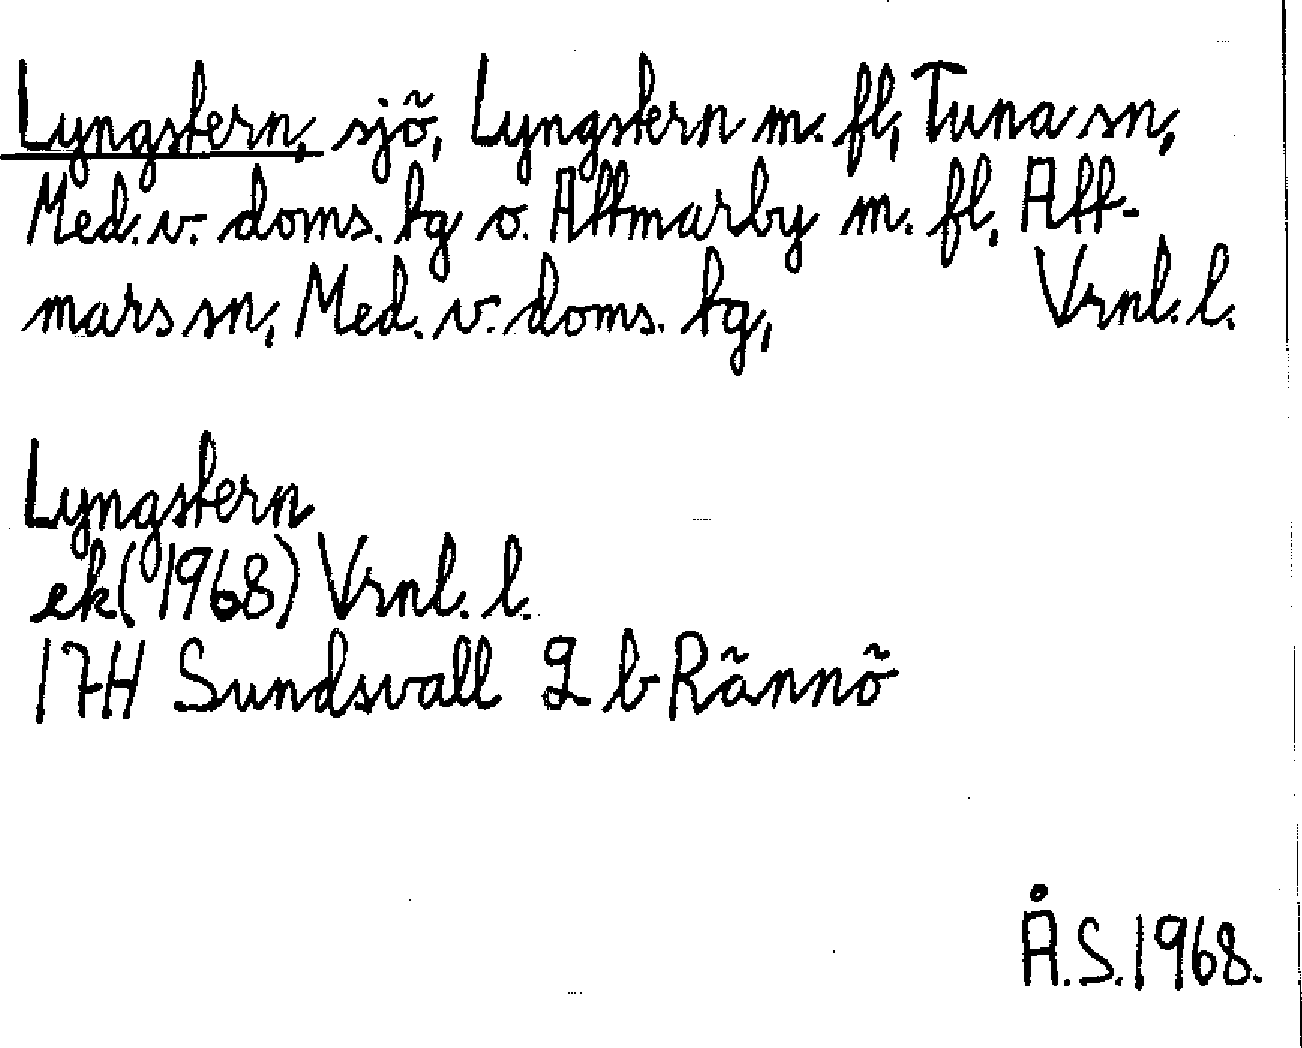 Lyngstern, sjö, Lyngstern m. fl, Tuna sn,
Med. v. doms. tg o. Attmarby m. fl, Att-
mars sn, Med. v. doms. tg, Vrnl. l.
Lyngstern
ek (1968) Vrnl. l.
17H Sundsvall 2 b Rännö
Å.S. 1968.